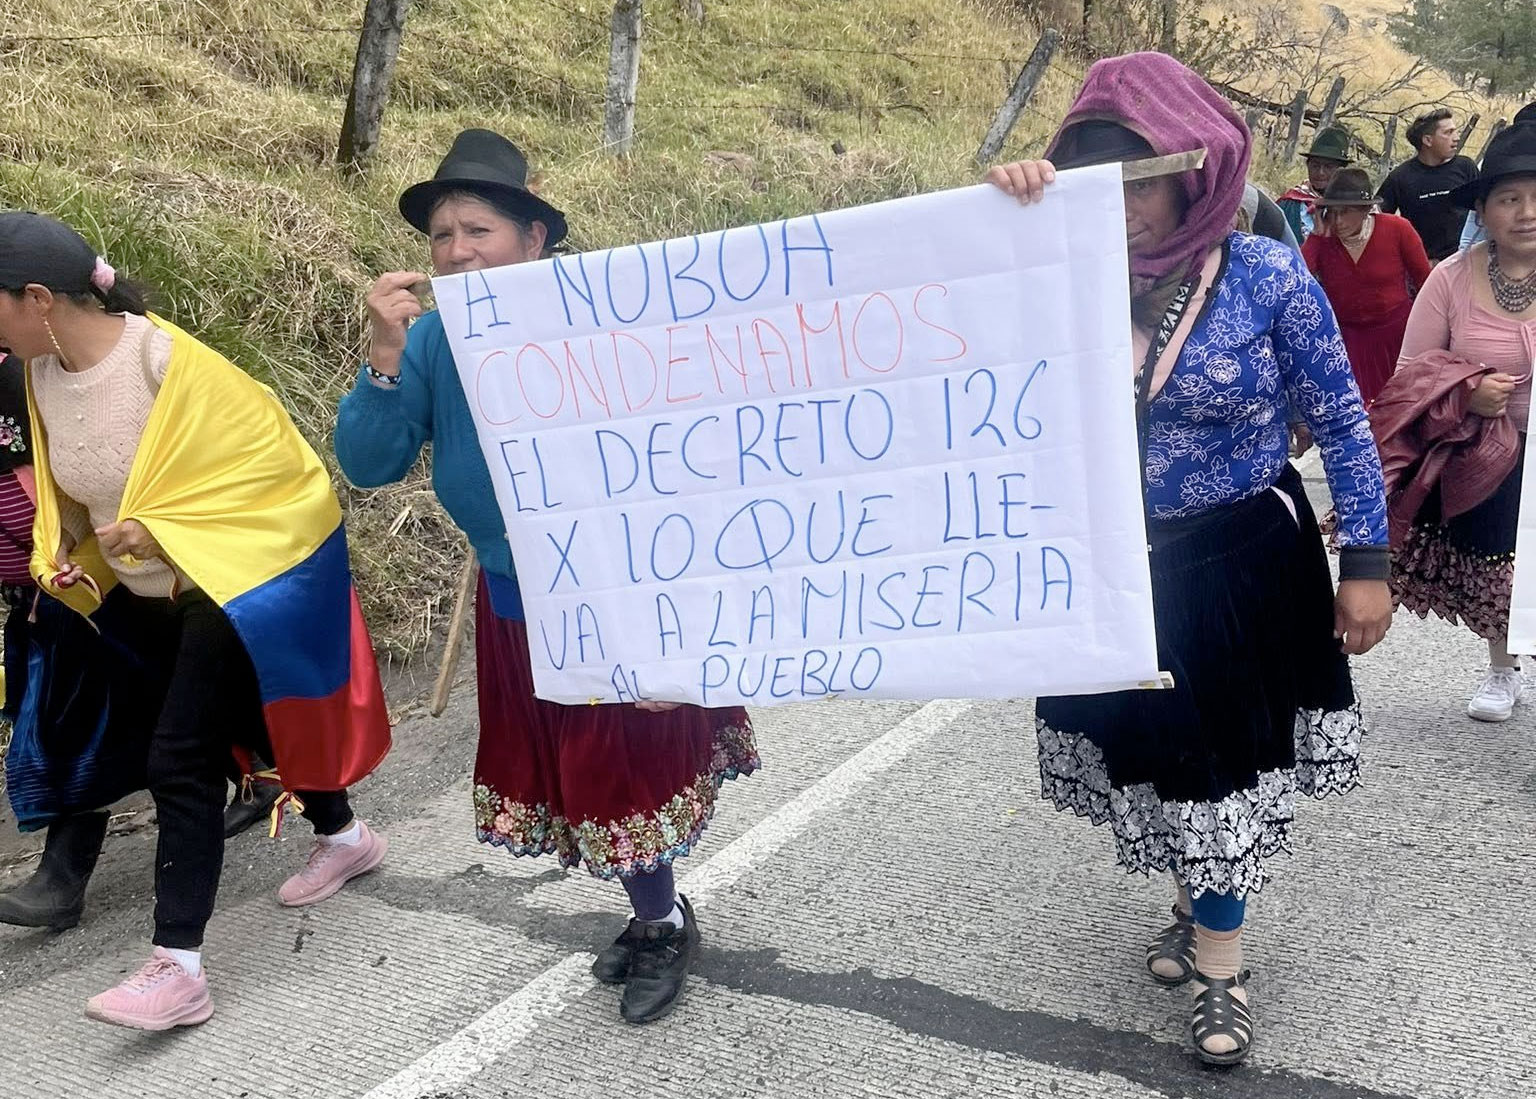 A NOBOA
CONDENAMOS
EL DECRETO 126
X LO QUE LLE-
VA A LA MISERIA
AL PUEBLO